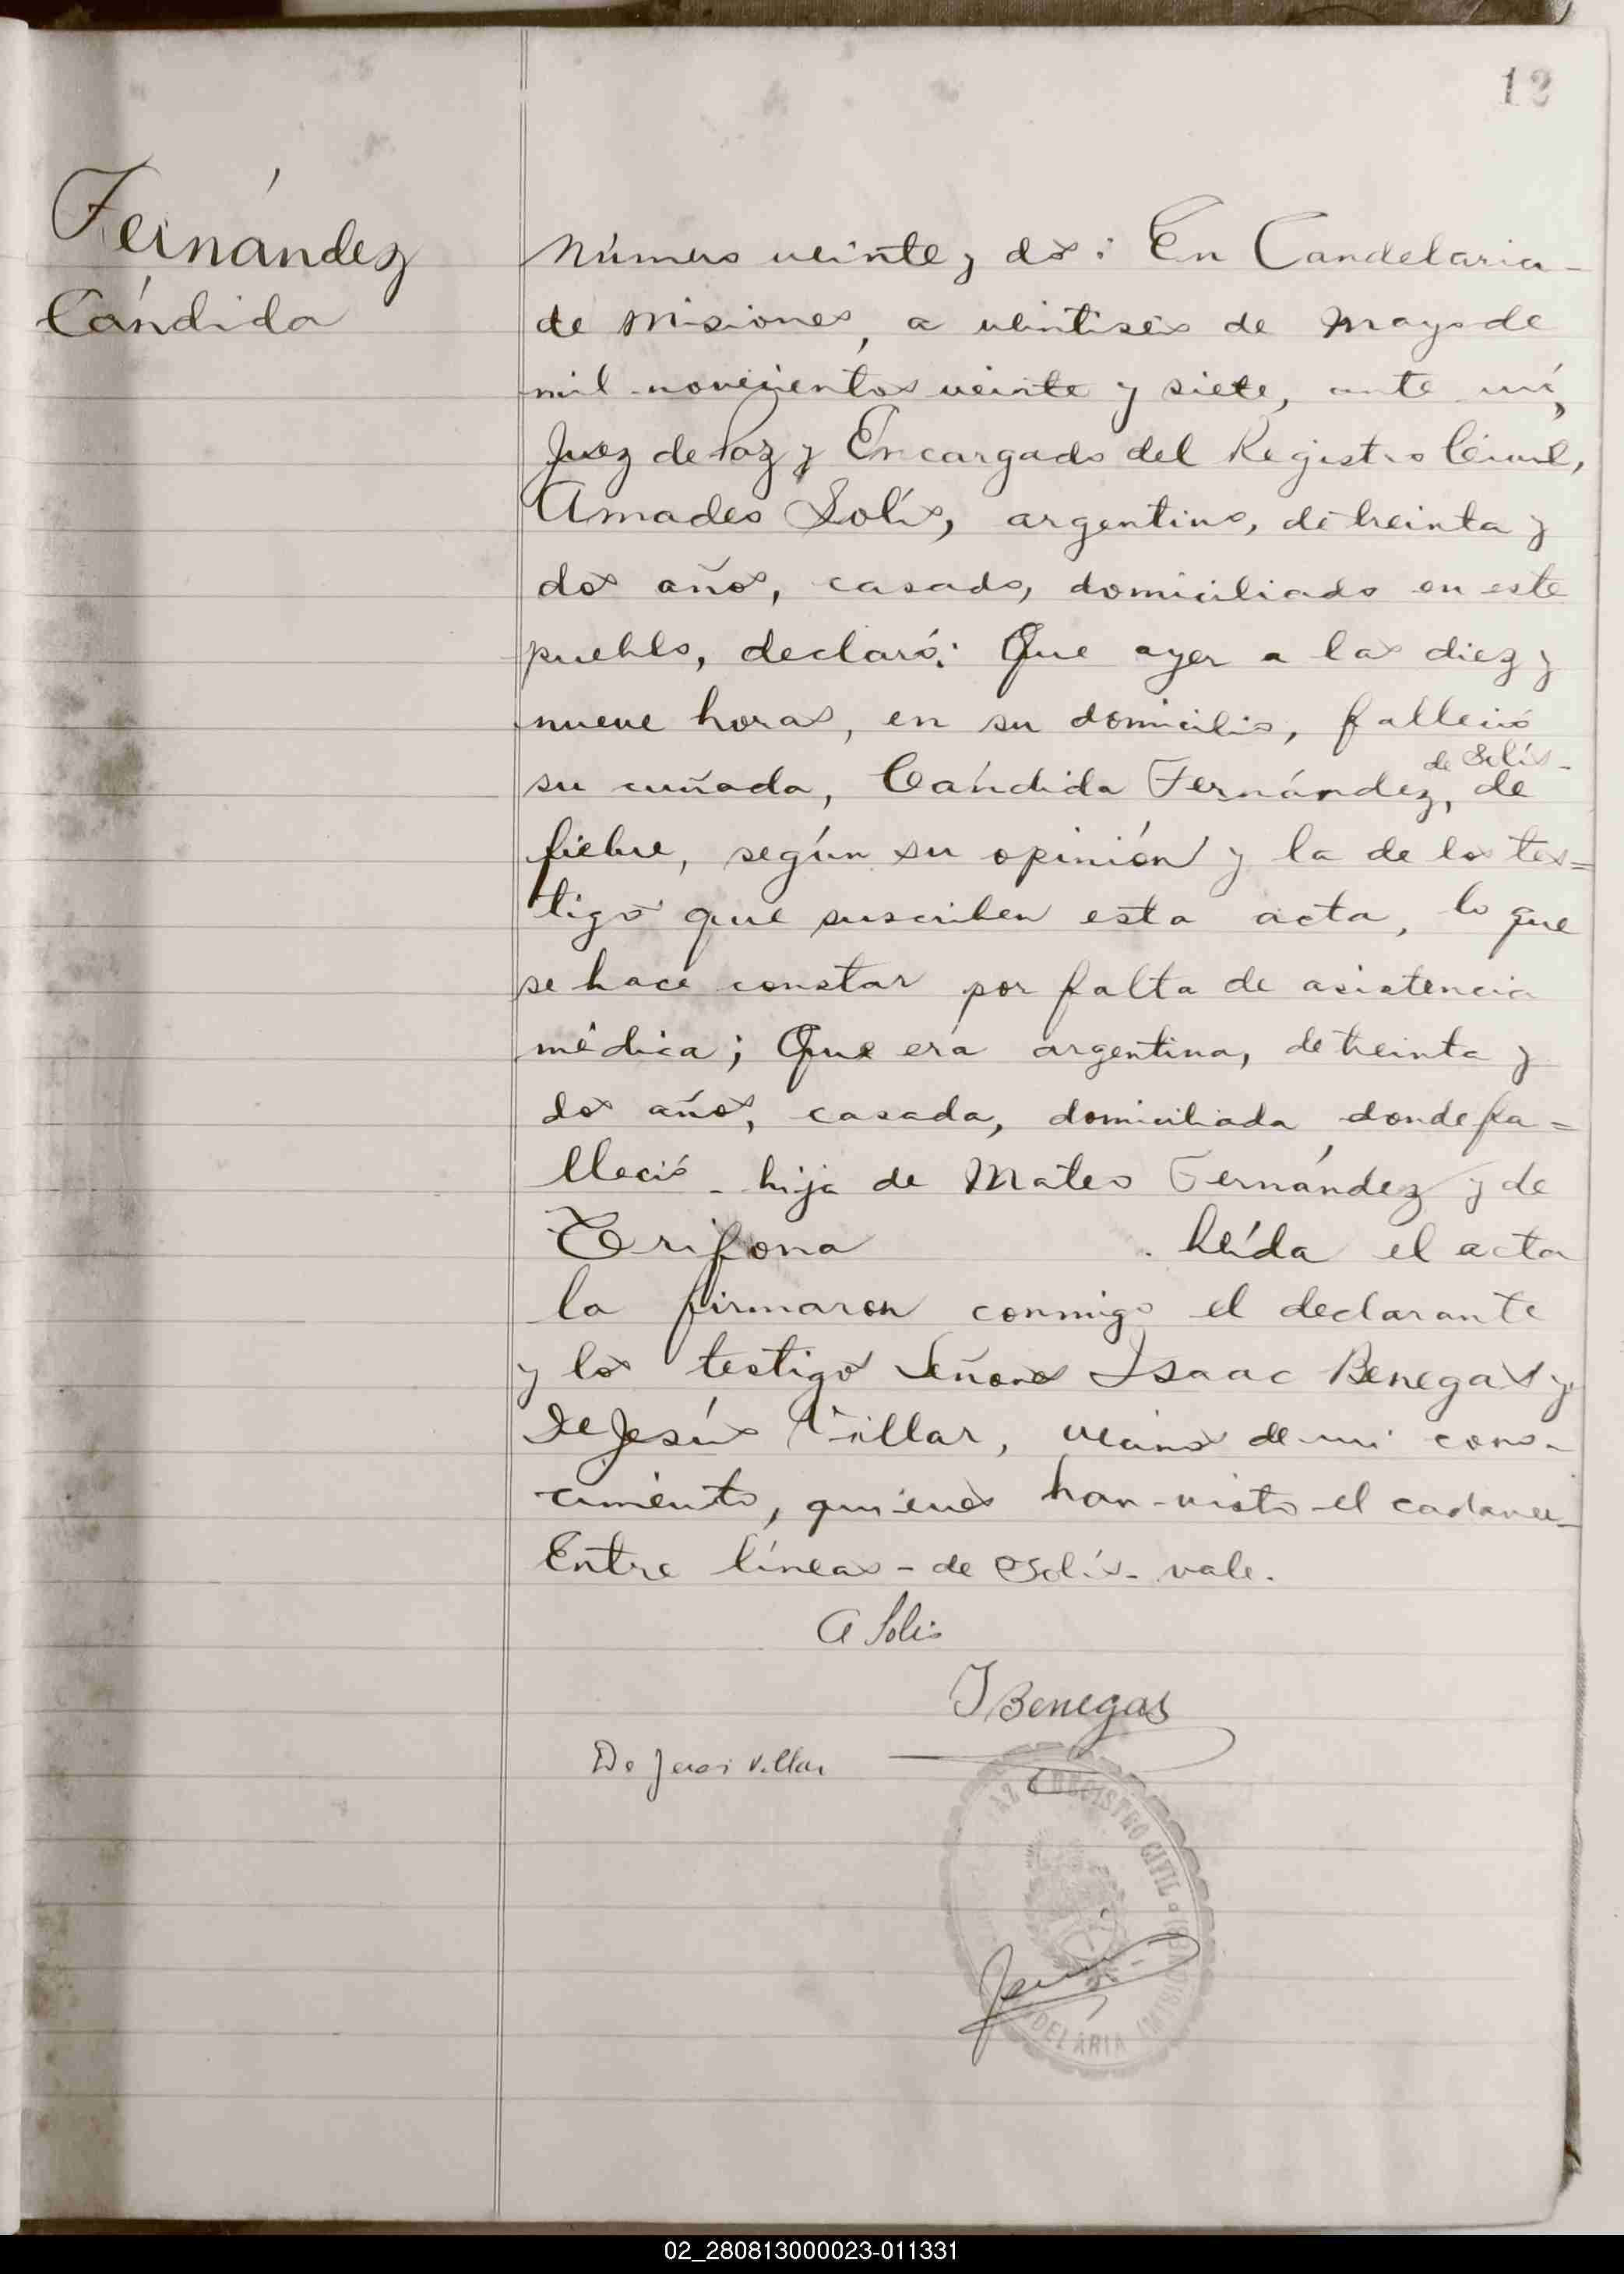 12
Fernández
Cándida
Número veinte y dos: En Candelaria-
de Misiones, a veintiséis de Mayo de
mil novecientos veinte y siete, ante mí,
Juez de Paz y Encargado del Registro Civil,
Amadeo Solís, argentino, de treinta y
dos años, casado, domiciliado en este
pueblo, declaró: Que ayer a las diez y
nueve horas, en su domicilio, falleció
de Solís-
su cuñada, Cándida Fernández, de
fiebre, según su opinión y la de los tes=
tigos que suscriben esta acta, lo que
se hace constar por falta de asistencia
médica; Que era argentina, de treinta y
dos años, casada, domiciliada donde fa=
lleció - hija de Mateo Fernández y de
Trifona . Leída el acta
la firmaron conmigo el declarante
y los testigos Señores Isaac Benegas y
De Jesús Villar, vecinos de mi cono-
cimiento, quienes han visto el cadaver-
Entre líneas - de Solís - vale.
A Solis
I Benegas
De Jesus Villar
AZ Y REGISTRO CIVIL
DELARIA (MISIONES)
02_280813000023-011331